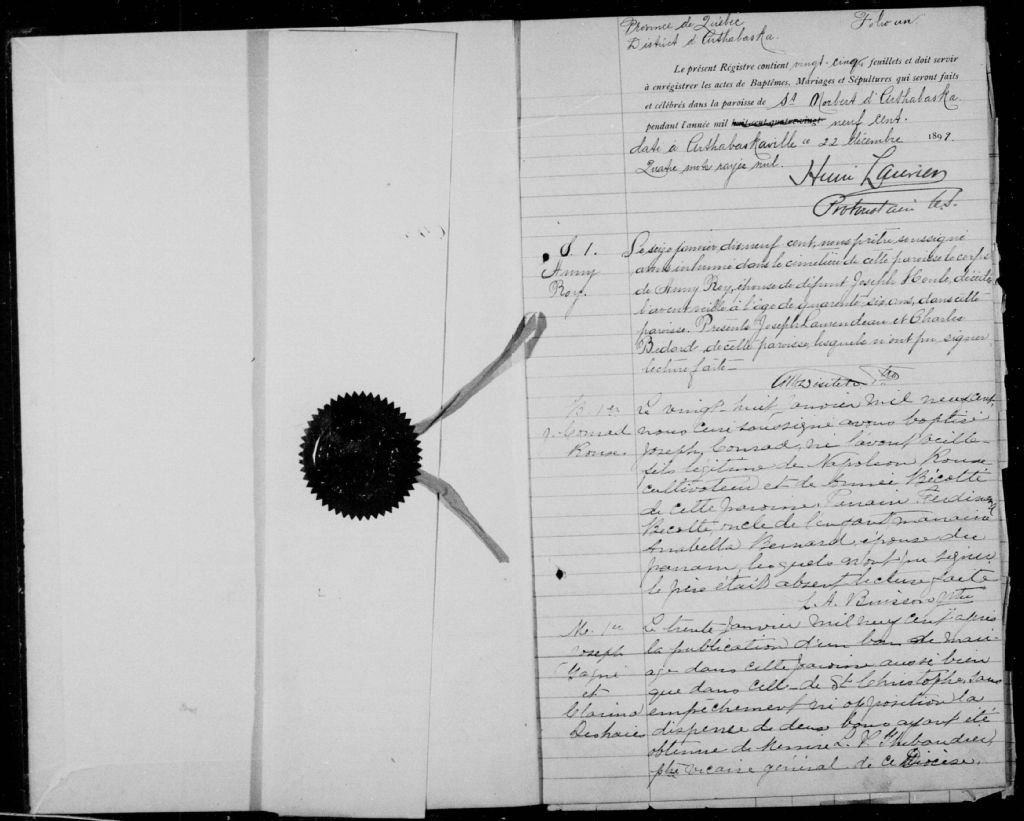 Province de Québec Folio un
District d'Arthabaska.
Le présent Régistre contient vingt-cinq feuillets et doit servir
à enrégistrer les actes de Baptêmes, Mariages et Sépultures qui seront faits
et célébrés dans la paroisse de St Norbert d'Arthabaska
pendant l'année mil huit cent quatre vingt neuf cent.
daté à Arthabaskaville ce 22 décembre 1899.
Quatre mots rayés nul.
Henri Laurier
Protonotaire C.S.
S. 1.
Anny
Roy.
Le seize janvier dix neuf cent, nous prêtre soussigné
avons inhumé dans le cimetière de cette paroisse le corps
de Anny Roy, épouse de défunt Joseph Houle, décédée
l'avant veille à l'âge de quarante-six ans, dans cette
paroisse. Présents Joseph Laurendeau et Charles
Bedard, de cette paroisse, lesquels n'ont pu signer
lecture faite
Ptre
B. 1er
J. Conrad
Rousse.
Le vingt-huit Janvier mil neuf cent,
nous curé soussigné avons baptisé
Joseph, Conrad, né l'avant veille
fils légitime de Napoleon Rousse
cultivateur et de Aimée Bécotte
de cette paroisse, Parrain Ferdinand
Becotte, oncle de l'enfant marraine
Annabella Bernard, épouse du
parrain, lesquels n'ont pu signer
le père était absent lecture faite
L. A. Buisson Ptre
M. 1er
Joseph
Gagné
et
Clarina
Deshaies
Le trente Janvier mil neuf cent après
la publication d'un ban de mari-
age dans cette paroisse aussi bien
que dans celle de St Christophe, sans
empêchement ni opposition la
dispense de deux bans ayant été
obtenue de Messire L. V. Thibaudier,
ptre vicaire général de ce Diocèse,